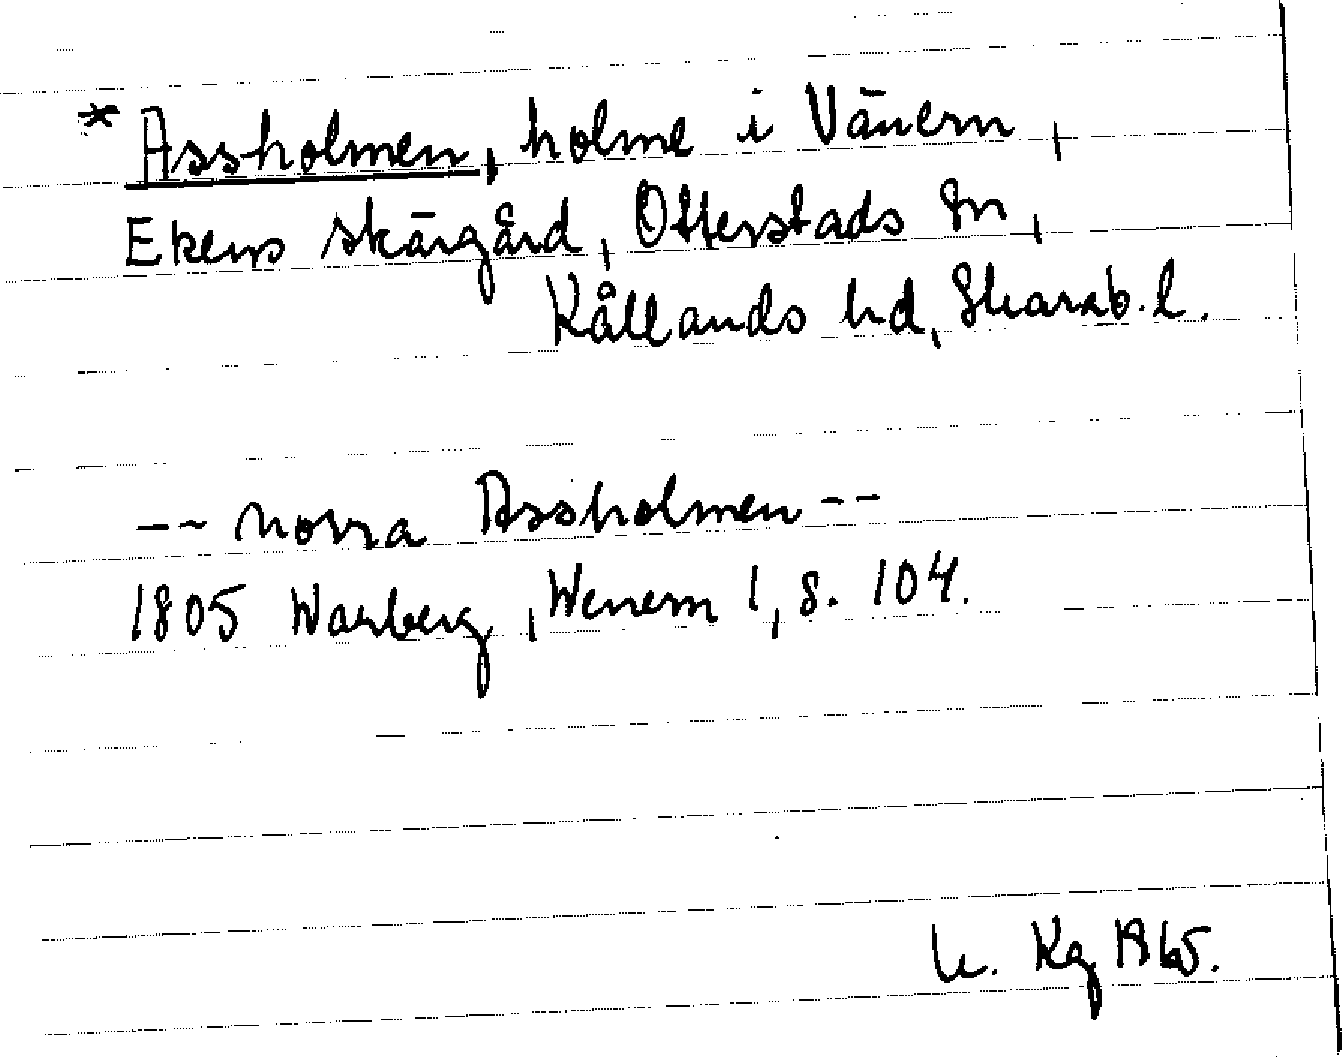 * Assholmen, holme i Vänern,
Ekens skärgård, Otterstads sn,
Kållands hd, Skarab. l.
-- norra Assholmen --
1805 Warberg, Wenern 1, s. 104.
Kg 1965.